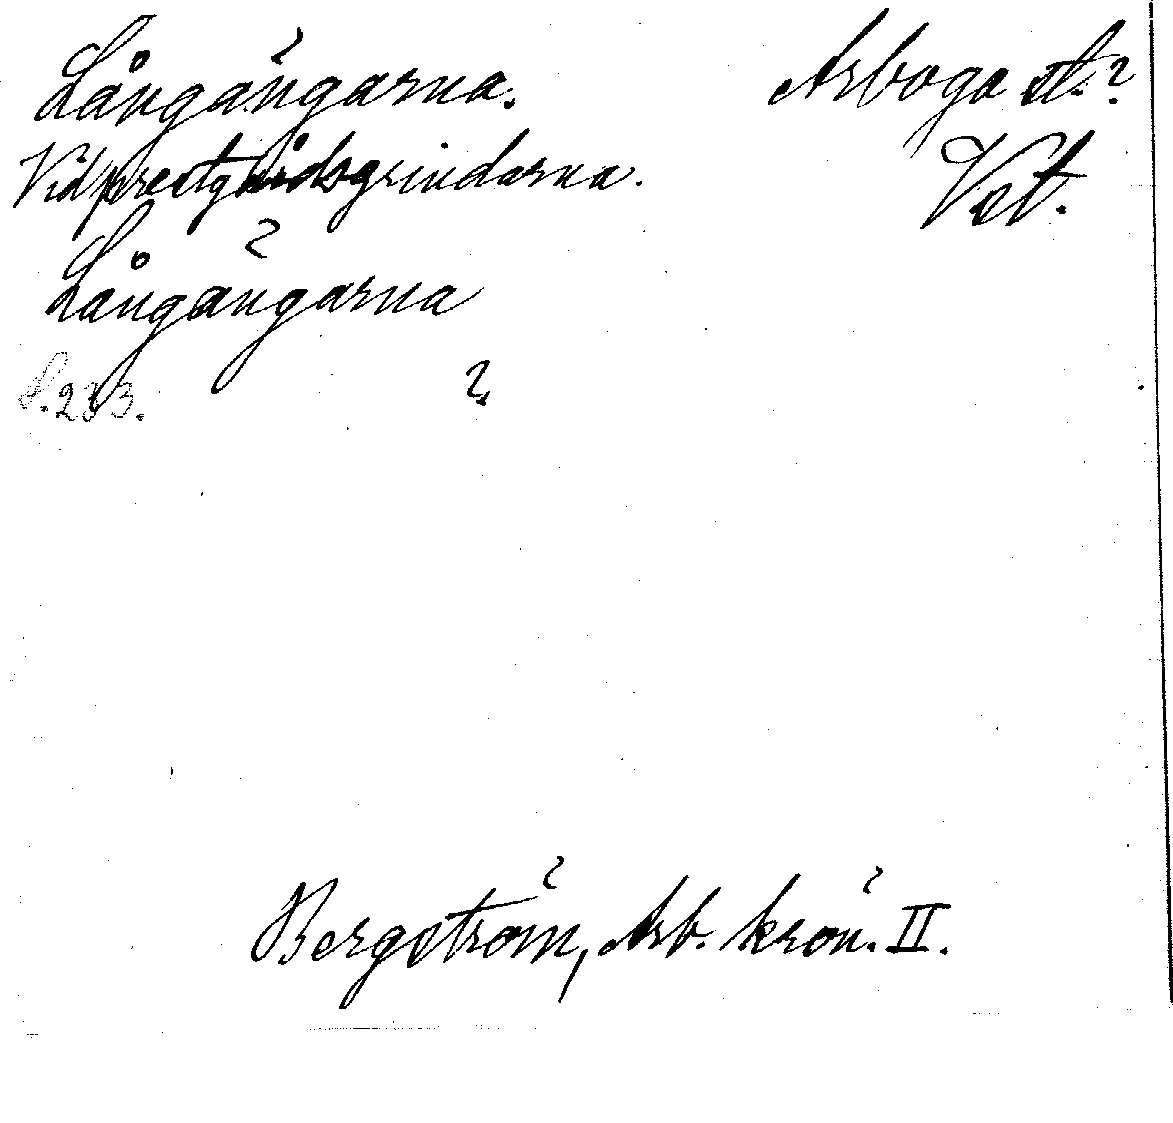 Långängarna.
Arboga st.?
Vid prestgårdsgrindarna.
Vst.
Långängarna
S. 233.
?
Bergström, Arb. krön. II.